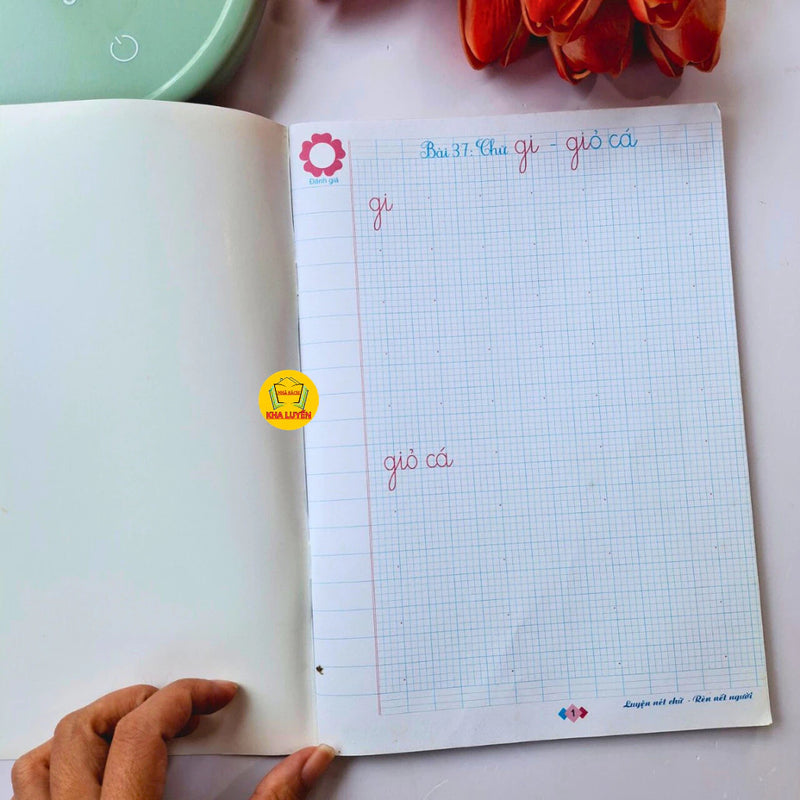 Bài 37: Chữ gi - giỏ cá
Đánh giá
gi
NHÀ SÁCH
KHA LUYẾN
giỏ cá
Luyện nét chữ - Rèn nết người
1